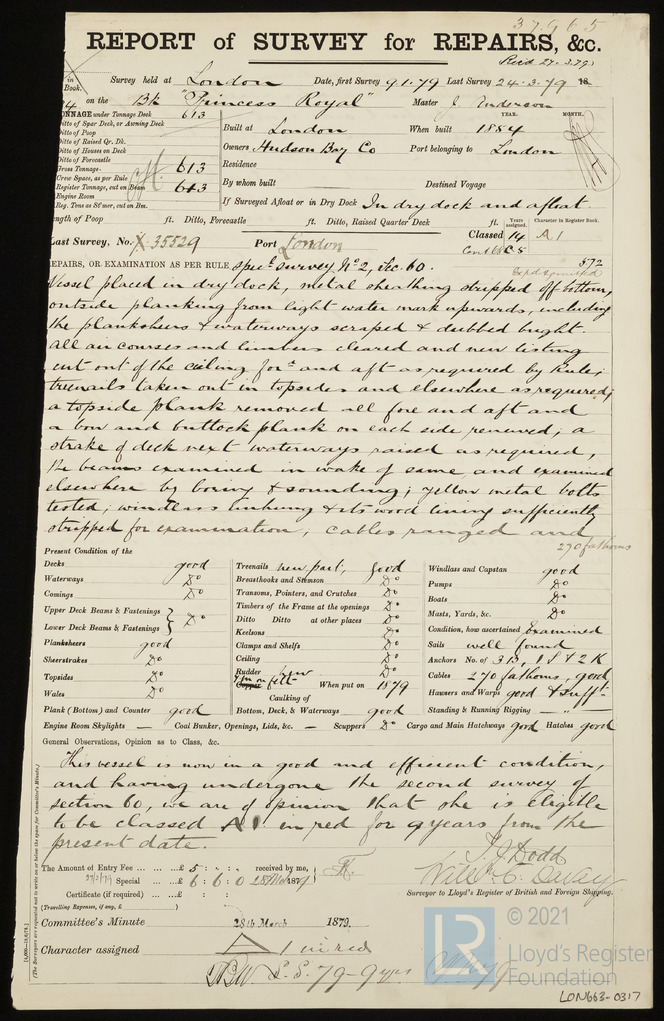 37965
REPORT of SURVEY for REPAIRS, &c.
Recd 27.3.79
in Book. Survey held at London Date, first Survey 9.1.79 Last Survey 24.3.79 18
on the Bk "Princess Royal" Master J Anderson
TONNAGE under Tonnage Deck 613
Ditto of Spar Deck, or Awning Deck
Ditto of Poop
Ditto of Raised Qr. Dk.
Ditto of Houses on Deck
Ditto of Forecastle
Gross Tonnage 613
Crew Space, as per Rule
Register Tonnage, cut on Beam 613
Engine Room
Reg. Tons as St'mer, cut on Bm.
YEAR. MONTH.
Built at London When built 1854
Owners Hudson Bay Co Port belonging to London
Residence
By whom built Destined Voyage
If Surveyed Afloat or in Dry Dock In dry dock and afloat
ength of Poop ft. Ditto, Forecastle ft. Ditto, Raised Quarter Deck ft. Years assigned. Character in Register Book.
Last Survey, No. 35529 Port London Classed 14 A 1
572
EPAIRS, OR EXAMINATION AS PER RULE, specl survey No 2, Sec. 60.
Vessel placed in dry dock, metal sheathing stripped off bottom,
outside planking from light water mark upwards, including
the planksheers & waterways scraped & dubbed bright.
All air courses and limbers cleared and new listing
cut out of the ceiling ford and aft as required by Rule;
treenails taken out in topsides and elsewhere as required;
a topside plank removed all fore and aft and
a bow and buttock plank on each side renewed; a
strake of deck next waterways raised as required,
the beams examined in wake of same and examined
elsewhere by boring & sounding; yellow metal bolts
tested; windlass unhung & its wood lining sufficiently
stripped for examination, cables ranged and
270 fathoms
Present Condition of the
Decks good
Waterways Do
Comings Do
Upper Deck Beams & Fastenings
Lower Deck Beams & Fastenings } Do
Planksheers good
Sheerstrakes Do
Topsides Do
Wales Do
Plank (Bottom) and Counter good
Treenails new part, good
Breasthooks and Stemson Do
Transoms, Pointers, and Crutches Do
Timbers of the Frame at the openings Do
Ditto Ditto at other places Do
Keelsons Do
Clamps and Shelfs Do
Ceiling Do
Rudder new
Copper felt When put on 1879
Caulking of
Bottom, Deck, & Waterways good
Windlass and Capstan good
Pumps Do
Boats Do
Masts, Yards, &c. Do
Condition, how ascertained Examined
Sails well found
Anchors No. of 3 B, 1 S & 2 K
Cables 270 fathoms, good
Hawsers and Warps good & sufft
Standing & Running Rigging
Engine Room Skylights — Coal Bunker, Openings, Lids, &c. — Scuppers Do Cargo and Main Hatchways good Hatches good
General Observations, Opinion as to Class, &c.
This vessel is now in a good and efficient condition,
and having undergone the second survey of
section 60, we are of opinion that she is eligible
to be classed A1 in red for 9 years from the
present date.
J. J. Dodd
The Amount of Entry Fee £ 5 : : received by me,
Special £ 6 : 6 : 0 187
Certificate (if required) £ : :
(Travelling Expenses, if any, £ )
Surveyor to Lloyd's Register of British and Foreign Shipping.
Committee's Minute 28th March 1879.
Character assigned A 1 in red
S.S. 79-9 yrs
(The Surveyors are requested not to write on or below the space for Committee's Minute.)
LR © 2021
Lloyd's Register
Foundation
LON663-0317